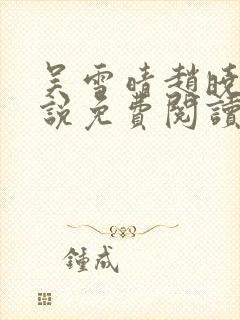 吴雪晴趙晓
說免費閱讀
鍾成